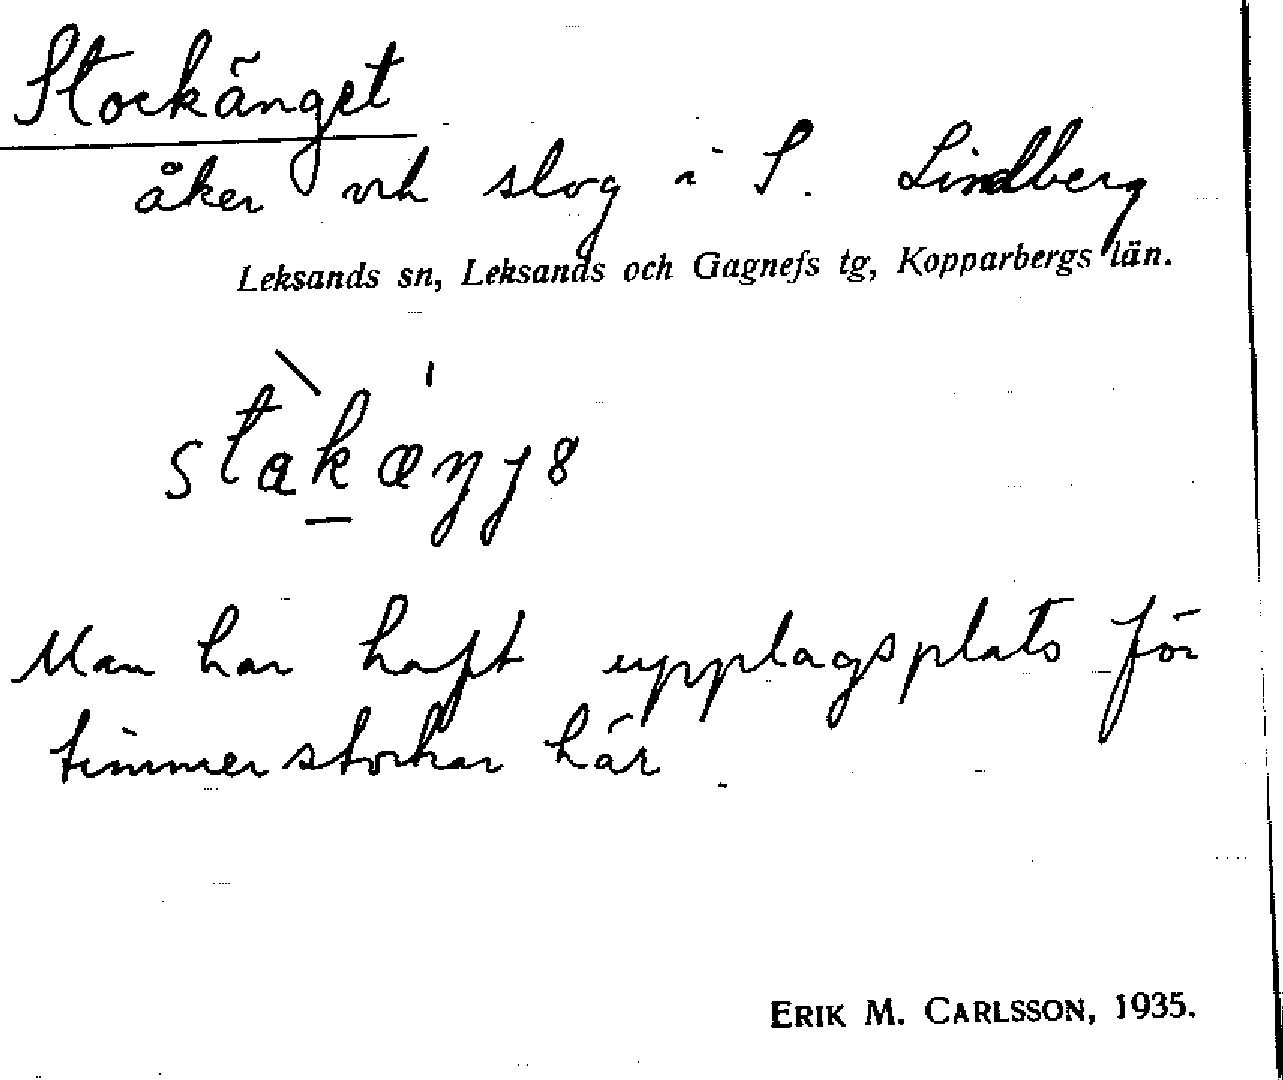 Stockänget
åker och slog i S. Lindberg
Leksands sn, Leksands och Gagnefs tg, Kopparbergs län.
Man har haft upplagsplats för
timmerstockar här
ERIK M. CARLSSON, 1935.